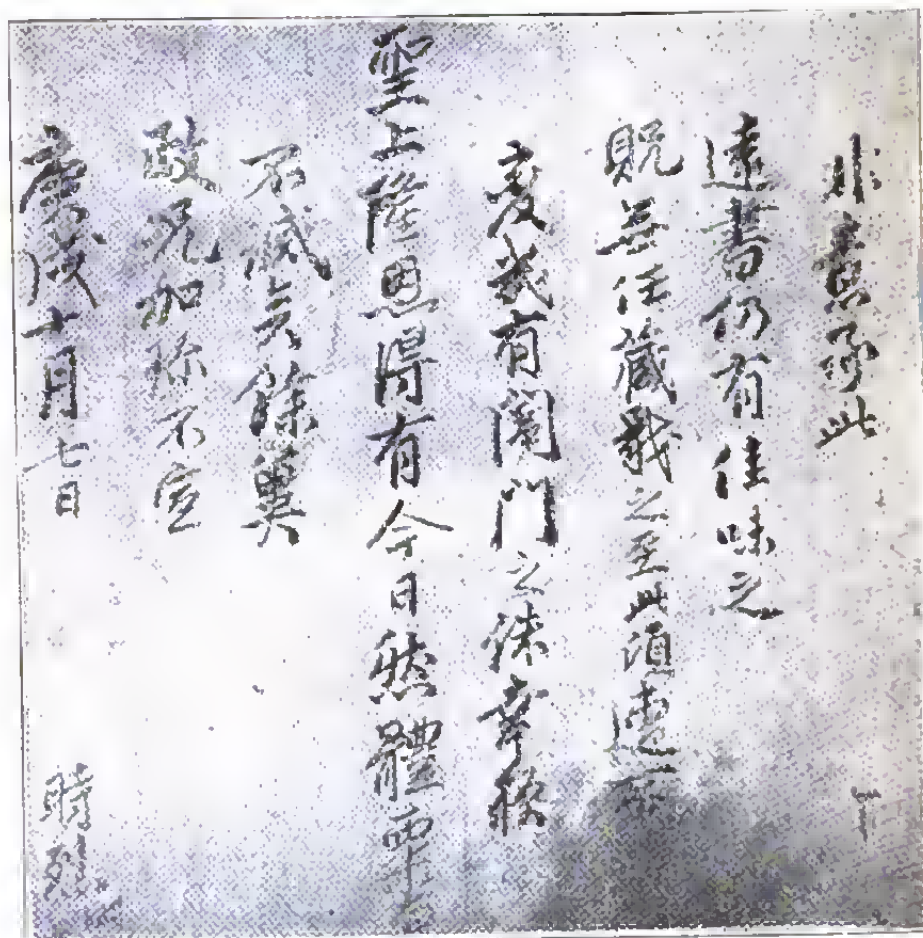 非意承此
遠書仍有佳味之
貺無任藏戢之至此頃遭
變幾有闔門之誅幸
聖上隆恩得有今日然體
不減矣餘冀
政況加珍不宣
庚戌十月七日 時烈